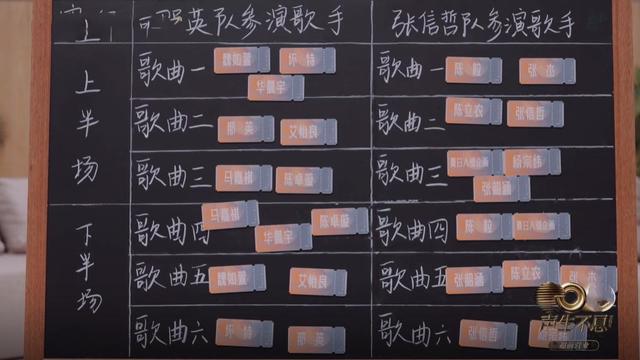 英队参演歌手
张信哲队参演歌手
上半场
歌曲一 魏如萱 坏特 华晨宇
歌曲一 陈粒 张杰
歌曲二 那英 艾怡良
歌曲二 陈立农 张信哲
歌曲三 马嘉祺 陈卓璇
歌曲三 夏日入侵企画 杨宗纬 张韶涵
下半场
歌曲四 马嘉祺 华晨宇 陈卓璇
歌曲四 陈粒 夏日入侵企画
歌曲五 魏如萱 艾怡良
歌曲五 张韶涵 陈立农 张杰
歌曲六 坏特 那英
歌曲六 张信哲
声生不息